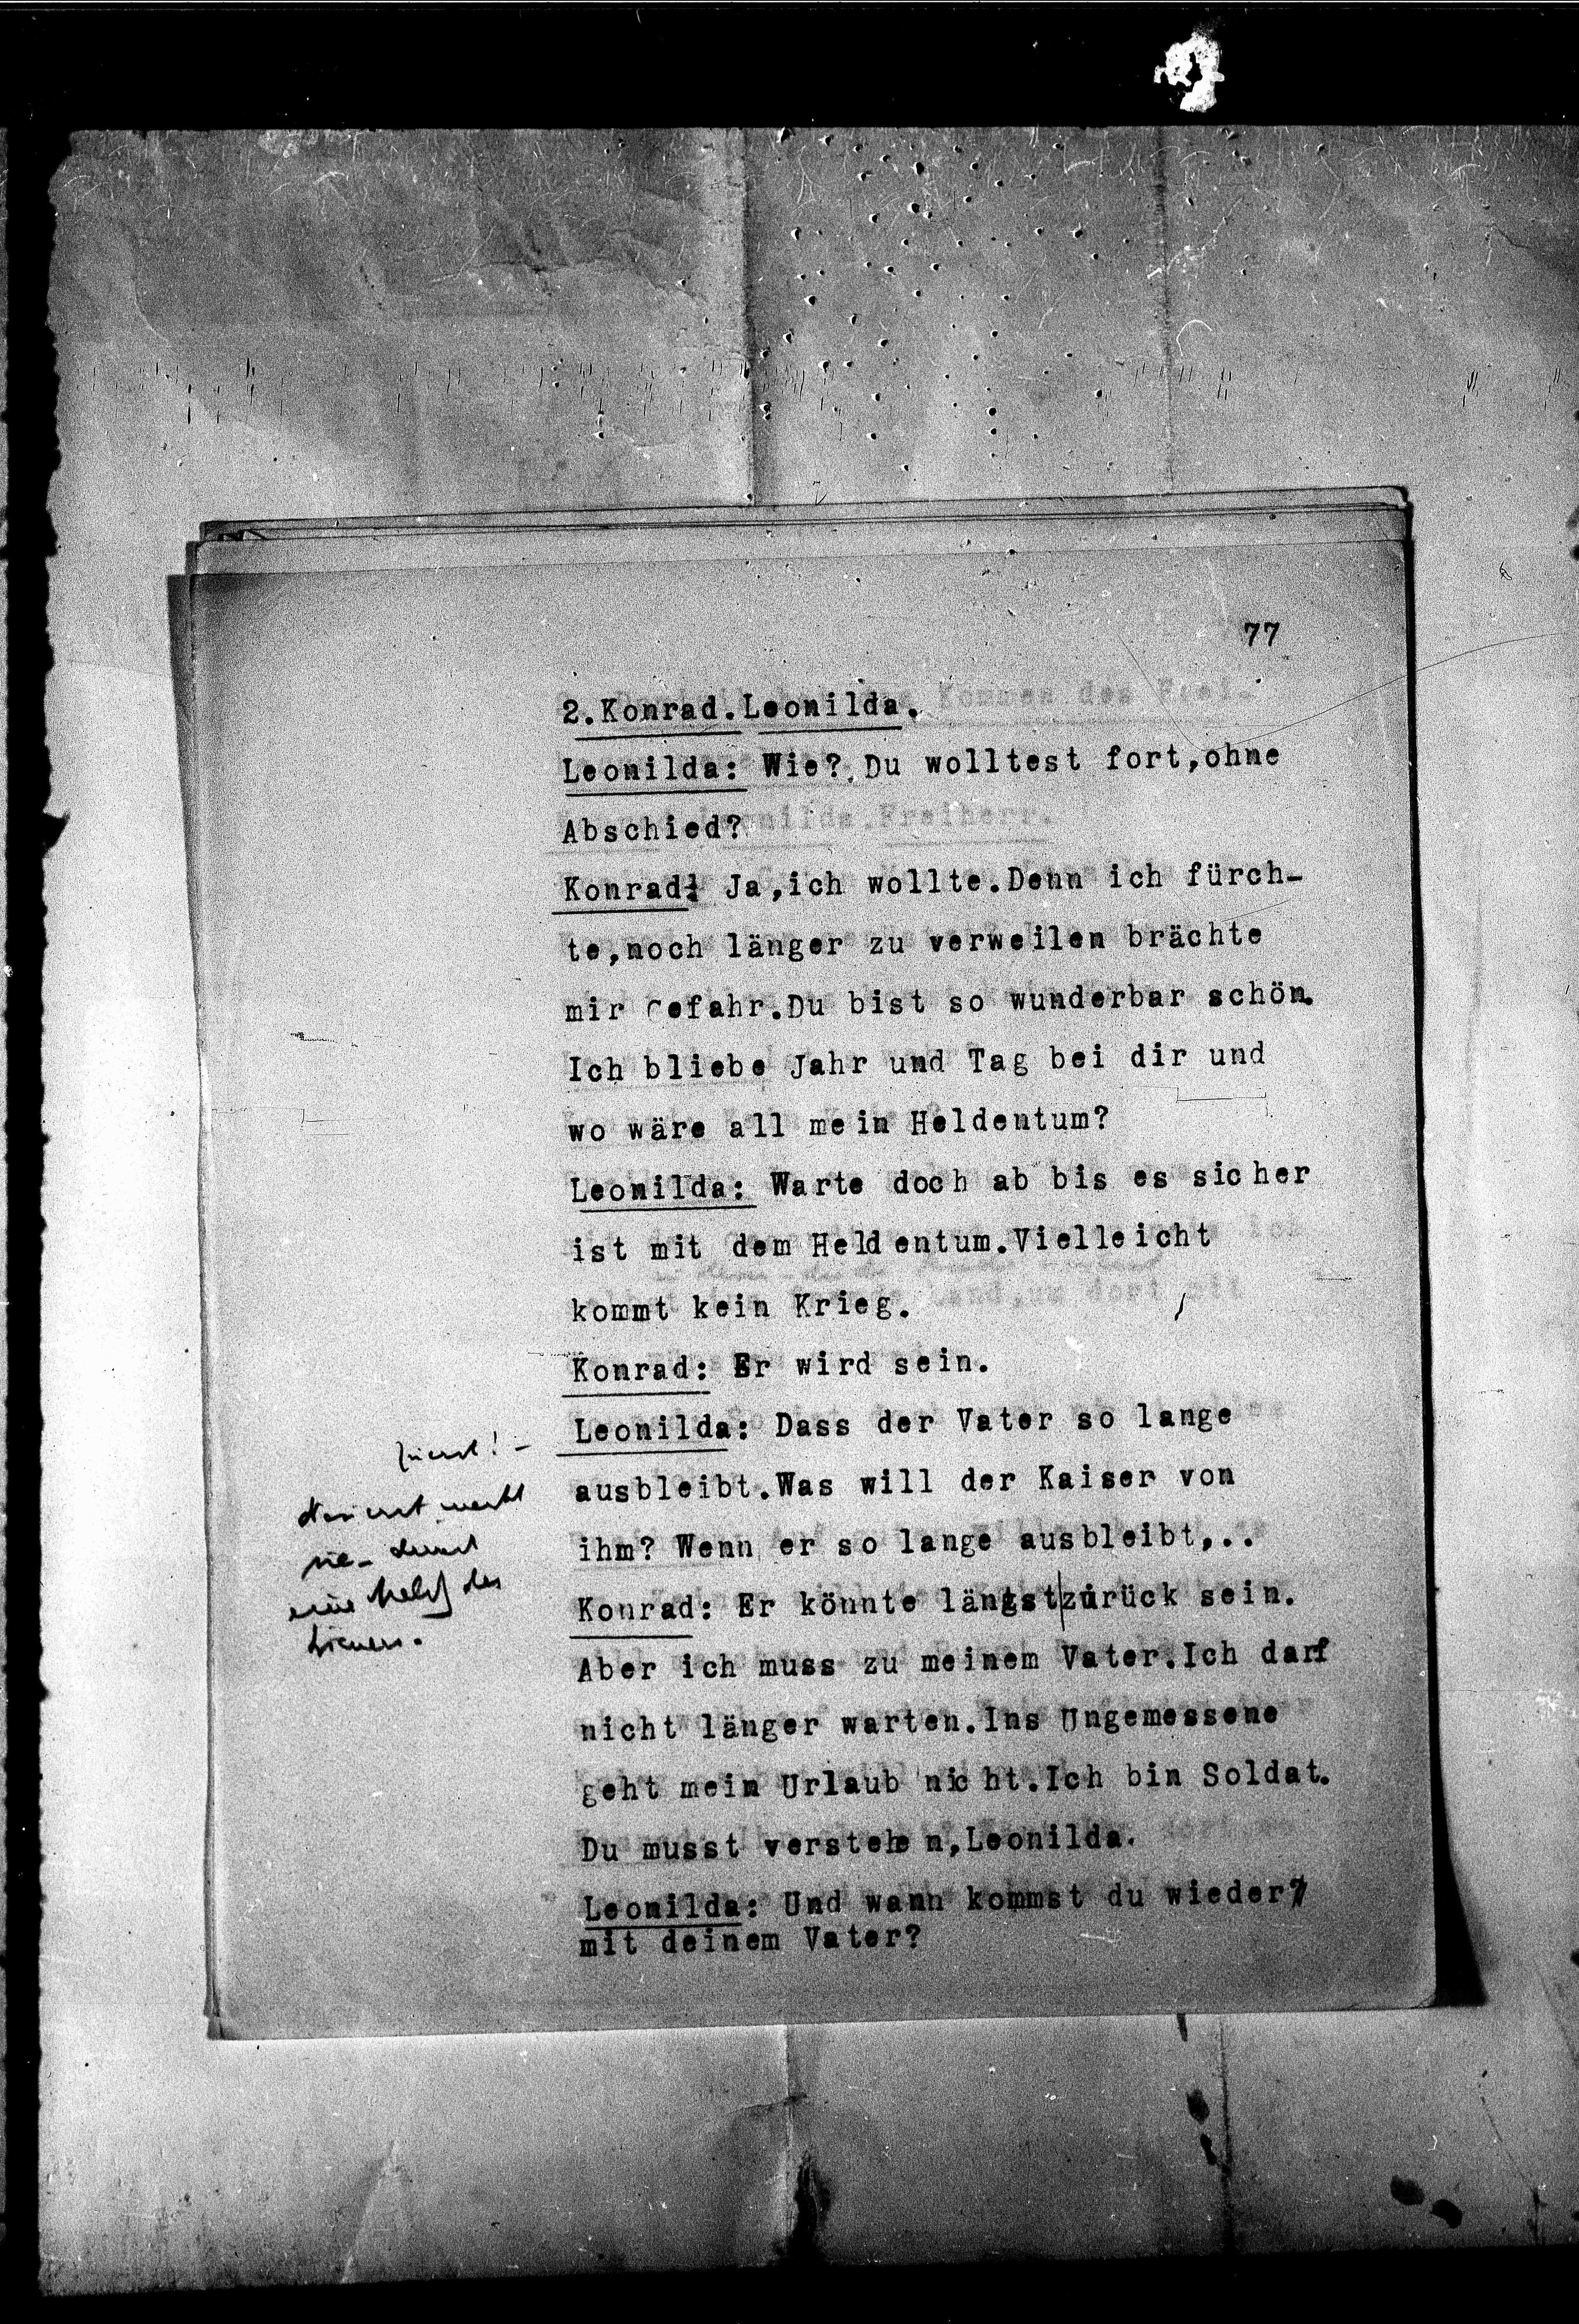 77
2.Konrad.Leonilda.
Leonilda: Wie? Du wolltest fort,ohne
Abschied?
Konrad: Ja,ich wollte.Denn ich fürch-
te,noch länger zu verweilen brächte
mir Gefahr.Du bist so wunderbar schön.
Ich bliebe Jahr und Tag bei dir und
wo wäre all mein Heldentum?
Leonilda: Warte doch ab bis es sicher
ist mit dem Heldentum.Vielleicht
kommt kein Krieg.
Konrad: Er wird sein.
Leonilda: Dass der Vater so lange
ausbleibt.Was will der Kaiser von
ihm? Wenn er so lange ausbleibt,..
Konrad: Er könnte längst zurück sein.
Aber ich muss zu meinem Vater.Ich darf
nicht länger warten.Ins Ungemessene
geht mein Urlaub nicht.Ich bin Soldat.
Du musst verstehen,Leonilda.
Leonilda: Und wann kommst du wieder?
mit deinem Vater?